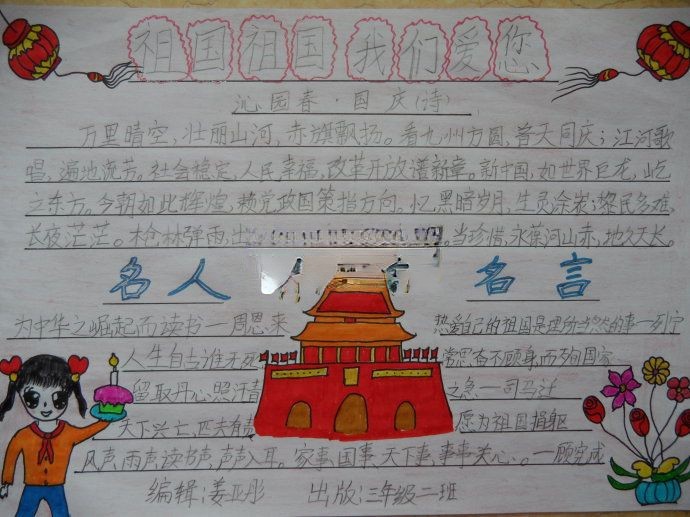 祖国祖国 我们爱您
沁园春·国庆(诗)
万里晴空,壮丽山河,赤旗飘扬。看九州方圆,普天同庆;江河歌
唱,遍地流芳。社会稳定,人民幸福,改革开放谱新章。新中国,如世界巨龙,屹
之东方。今朝如此辉煌,赖党政国策指方向。忆,黑暗岁月,生灵涂炭;黎民多难,
长夜茫茫。枪林弹雨,出
当珍惜,永葆河山赤,地久天长。
名人 名言
为中华之崛起而读书—周恩来
热爱自己的祖国是理所当然的事—列宁
人生自古谁无死
常思奋不顾身,而殉国家
留取丹心照汗青
之急—司马迁
天下兴亡,匹夫有责
愿为祖国捐躯
风声,雨声,读书声,声声入耳。家事,国事,天下事,事事关心。—顾宪成
编辑:姜亚彤 出版:三年级二班